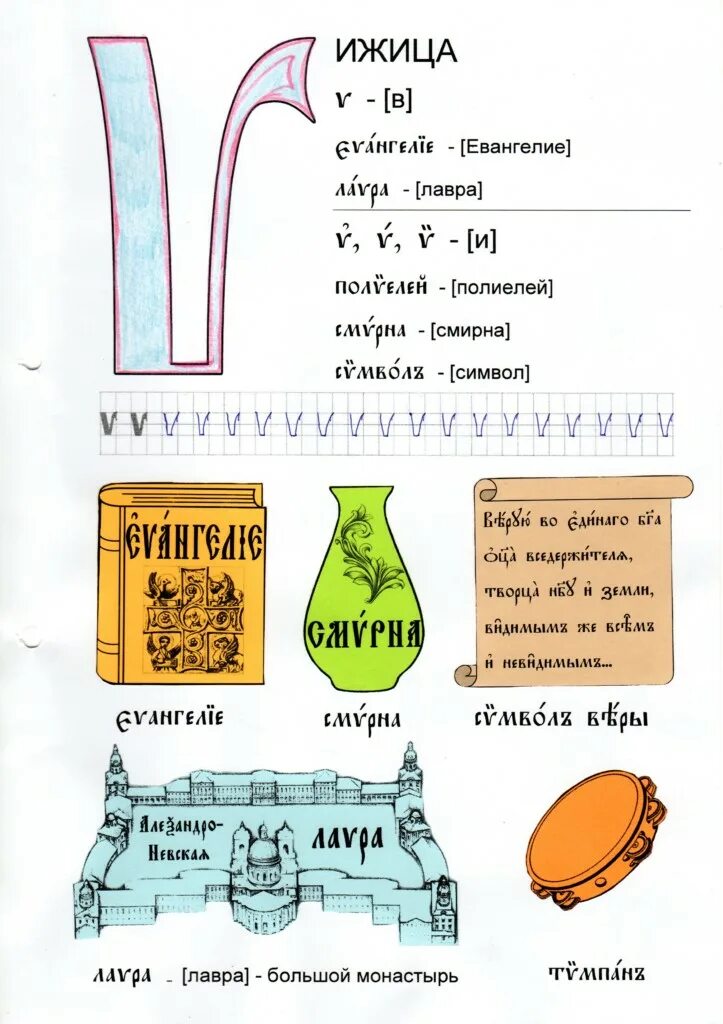 ИЖИЦА
ѵ - [в]
єѵа́нгелїе - [Евангелие]
ла́ѵра - [лавра]
ѵ҆, ѵ́, ѷ - [и]
полѷелей - [полиелей]
смѵ́рна - [смирна]
сѷмво́лъ - [символ]
Ѵ Ѵ ѵ ѵ ѵ ѵ ѵ ѵ ѵ ѵ ѵ ѵ ѵ ѵ ѵ ѵ ѵ ѵ ѵ
Є҆ѴА́НГЕЛІЕ
СМѴ́РНА
Вѣ́рꙋю во є҆ди́наго бг҃а
ѻ҆ц҃а̀ вседержи́телѧ,
творца̀ нб҃ꙋ и҆ землѝ,
ви̑димымъ же всѣ̑мъ
и҆ неви̑димымъ...
єѵангелїе
смѵ́рна
сѷмво́лъ вѣ́ры
Алеѯандро-
Невская
ЛАѴРА
лаѵра - [лавра] - большой монастырь
тѷмпа́нъ